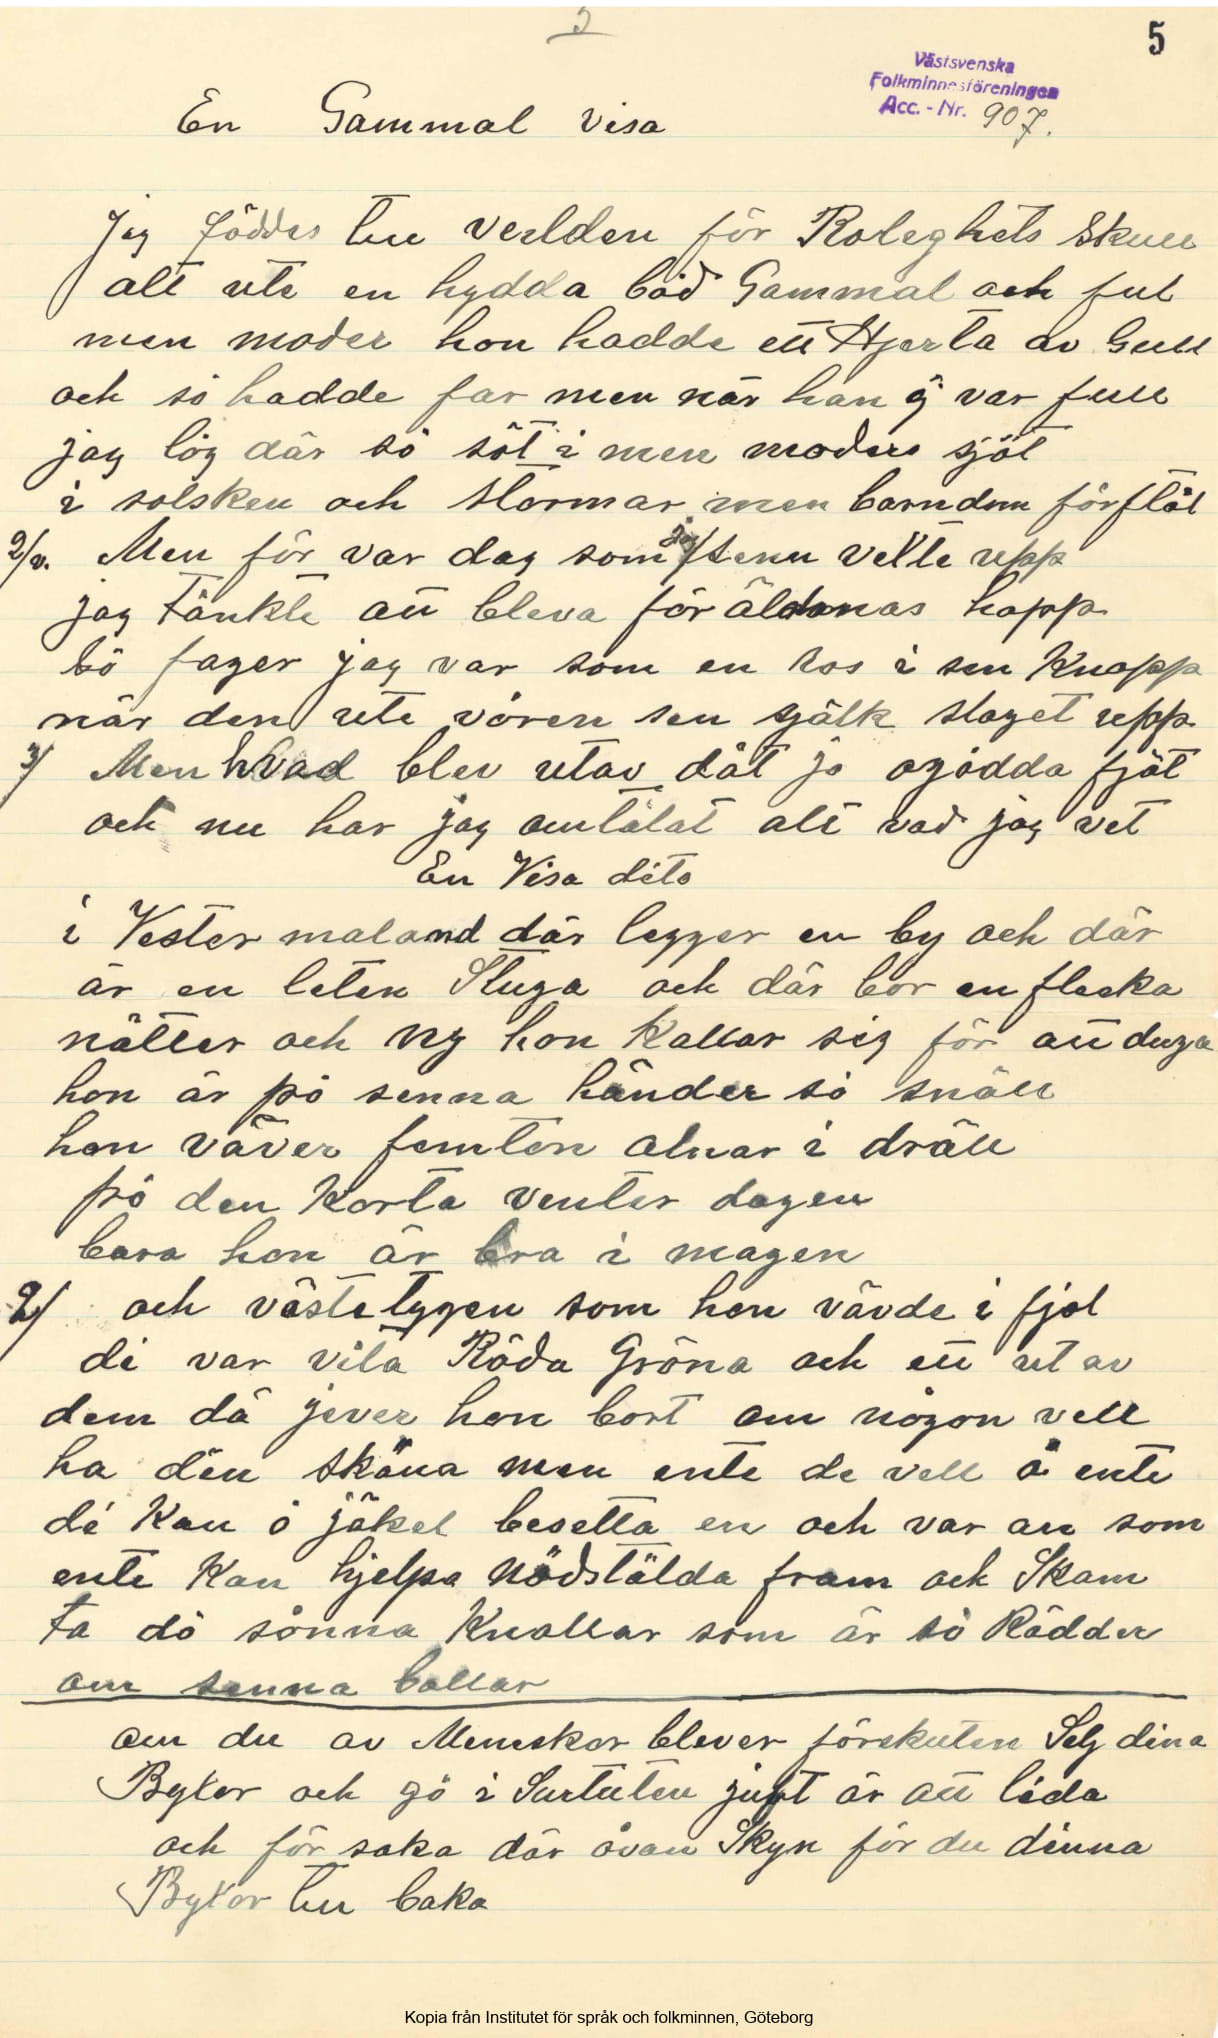 5
5
Västsvenska
Folkminnesföreningen
Acc. - Nr. 907.
En Gammal Visa
Jag föddes till verlden för Roleghets Skull
alt ute en hydda båd Gammal och ful
men moder hon hadde ett Hjerta av Gull
och så hadde far men när han ej var full
jag låg där så söt i men moders sjöt
i solsken och stormar men barndom förflöt
2/v. Men för var dag som jag stenu vette upp
jag tänkte att bleva föräldrarnas hopp
så fager jag var som en Ros i sen Knopp
när den ute våren sen sjålk slaget upp
3/ Men hvad blev utav dät jo ogådda fjät
och nu har jag omtalat alt vad jag vet
En Visa dito
i Vester maland där legger en by och där
är en leten Stuga och där bor en flecka
nätter och Ny hon Kallar sig för att duga
hon är på senna händer så snäll
hon väver femton alnar i dräll
på den Korta venter dagen
bara hon är bra i magen
2/ och västetygen som hon vävde i fjol
di var vita Röda Gröna och ett utav
dem dä jever hon bort om någon vell
ha den sköna men ente de vell å ente
dé Kan å jäkel besetta en och var an som
ente Kan hjelpa Nödstälda fram och Skam
ta då sånna Knallar som är så Rädder
om senna ballar
om du av Menskor blever förskuten Selj dina
Byxor och gå i Surtuten juft är att lida
och för saka där åvan Skyn får du dinna
Byxor till baka
Kopia från Institutet för språk och folkminnen, Göteborg